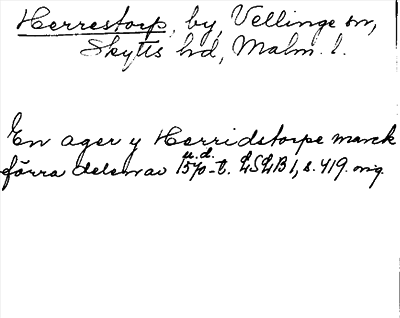 Herrestorp, by, Vellinge sn,
Skytts hd, Malm. l.
En ager y Herridstorpe marck
u.d.
förra delen av 1570-t. LSLB 1, s. 419. orig.